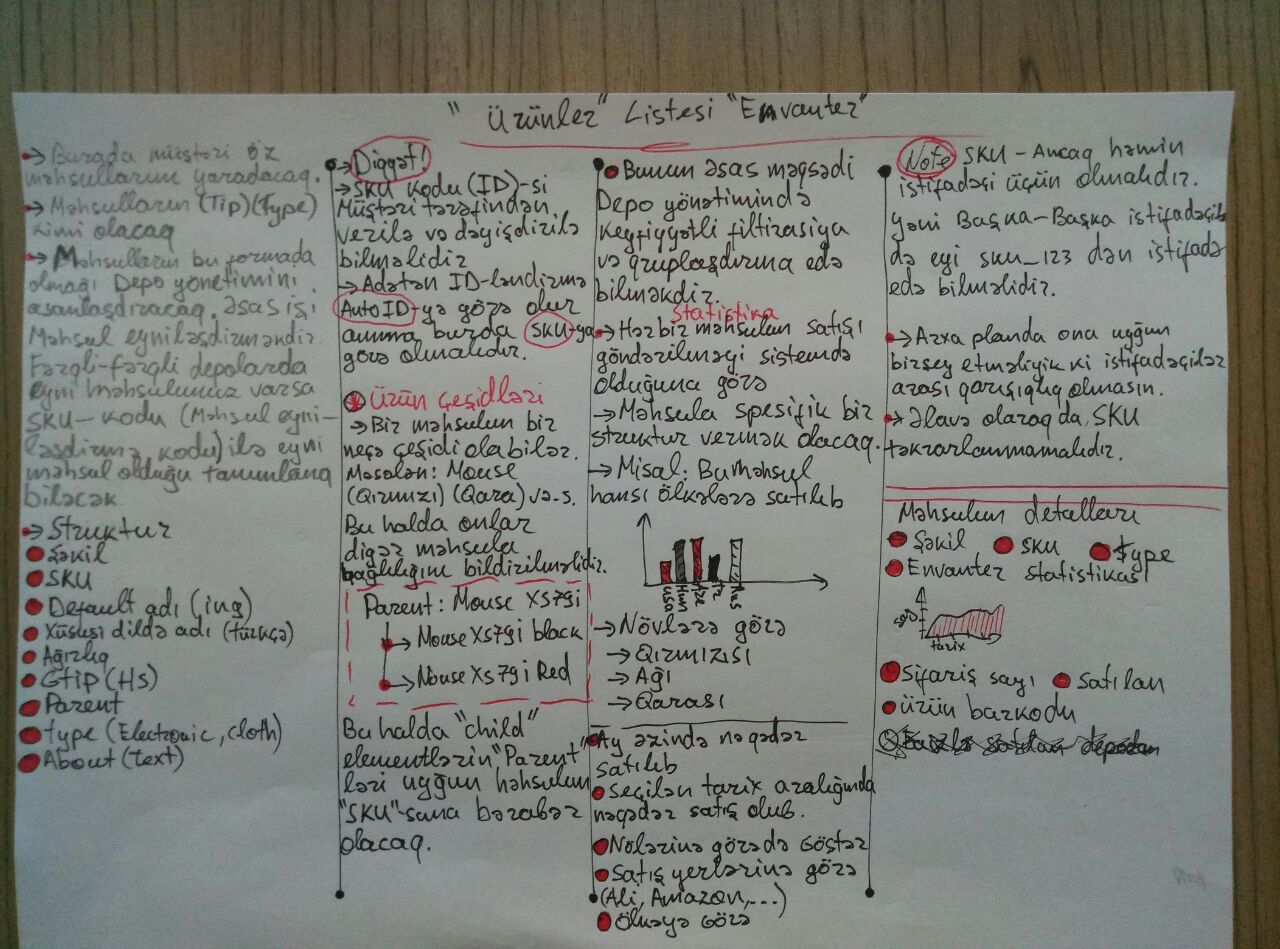 "Ürünler" Listesi "Envanter"
→ Burada müştəri öz
məhsullarını yaradacaq.
→ Məhsulların (Tip)(Type)
kimi olacaq
→ Məhsulların bu formada
olmağı Depo yönetimini
asanlaşdıracaq. Əsas işi
Məhsul eyniləşdirməndir
Fərqli-fərqli depolarda
eyni məhsulumuz varsa
SKU-kodu (Məhsul eyni-
ləşdirmə kodu) ilə eyni
məhsul olduğu tanımlana
biləcək
→ Struktur
Şəkil
SKU
Default adı (ing)
Xüsusi dildə adı (türkçə)
Ağırlıq
Gtip (Hs)
Parent
type (Electronic, cloth)
About (text)
→ Diqqət!
→ SKU kodu (ID)-si
Müştəri tərəfindən
verilə və dəyişdirilə
bilməlidir
→ Adətən ID-ləndirmə
AutoID-yə görə olur
amma burda SKU-ya
görə olmalıdır.
Ürün çeşidləri
→ Bir məhsulun bir
neçə çeşidi ola bilər.
Məsələn: Mouse
(Qırmızı) (Qara) və-s.
Bu halda onlar
digər məhsula
bağlılığını bildirilməlidir.
Parent: Mouse XS79i
→ Mouse XS79i black
→ Mouse XS79i Red
Bu halda "child"
elementlərin "Parent"
ləri uyğun məhsulun
"SKU"-suna bərabər
olacaq.
Bunun əsas məqsədi
Depo yönətimində
Keyfiyyətli filtirasiya
və qruplaşdırma edə
bilməkdir.
Statistika
→ Hər bir məhsulun satışı
göndərilməyi sistemdə
olduğuna görə
→ Məhsula spesifik bir
struktur vermək olacaq.
→ Misal: Bu məhsul
hansı ölkələrə satılıb
USA
Aze
Tr
Rus
→ Növlərə görə
→ Qırmızısı
→ Ağı
→ Qarası
Ay ərzində nə qədər
satılıb
Seçilən tarix aralığında
nəqədər satış olub.
Nölərinə görədə Göstər
Satış yerlərinə görə
(Ali, Amazon, ...)
Ölkəyə Görə
Note SKU - Ancaq həmin
istifadəçi üçün olmalıdır.
Yəni Başka-Başka istifadəçilə
də eyi sku_123 dən istifadə
edə bilməlidir.
→ Arxa planda ona uyğun
birşey etməliyik ki istifadəçilər
arası qarışıqlıq olmasın.
→ Əlavə olaraq da, SKU
təkrarlanmamalıdır.
Məhsulun detalları
Şəkil SKU type
Envanter statistikası
tarix
Sifariş sayı Satılan
Ürün barkodu